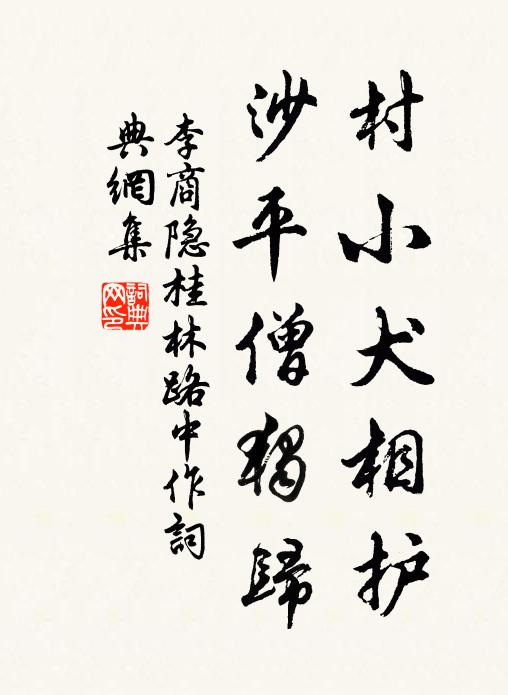 村小犬相护
沙平僧独歸
李商隐桂林路中作詞
典網集
詞典
网印